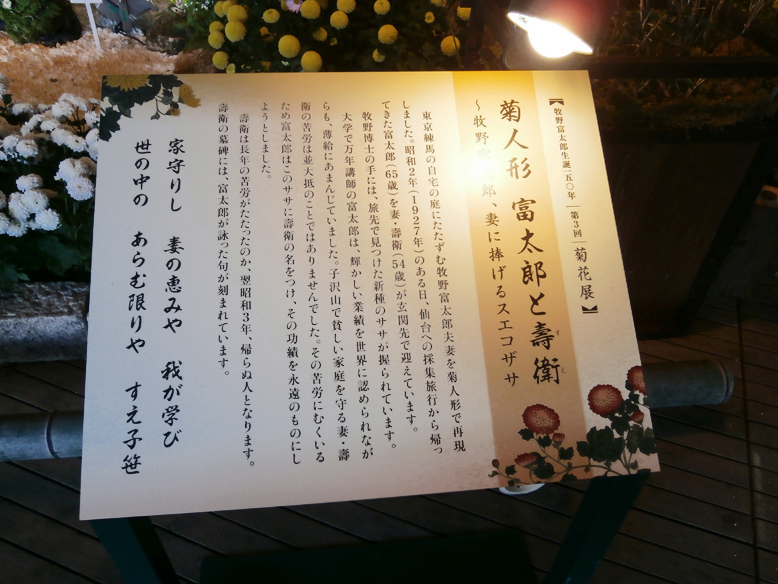 【牧野富太郎生誕一五〇年 第3回 菊花展】
菊人形 富太郎と壽衛
すえ
～牧野 郎、妻に捧げるスエコザサ
東京練馬の自宅の庭にたたずむ牧野富太郎夫妻を菊人形で再現
しました。昭和2年(1927年)のある日、仙台への採集旅行から帰っ
てきた富太郎(65歳)を妻・壽衛(54歳)が玄関先で迎えています。
牧野博士の手には、旅先で見つけた新種のササが握られています。
大学で万年講師の富太郎は、輝かしい業績を世界に認められなが
らも、薄給にあまんじていました。子沢山で貧しい家庭を守る妻・壽
衛の苦労は並大抵のことではありませんでした。その苦労にむくいる
ため富太郎はこのササに壽衛の名をつけ、その功績を永遠のものにし
ようとしました。
壽衛は長年の苦労がたたったのか、翌昭和3年、帰らぬ人となります。
壽衛の墓碑には、富太郎が詠った句が刻まれています。
家守りし 妻の恵みや 我が学び
世の中の あらむ限りや すえ子笹